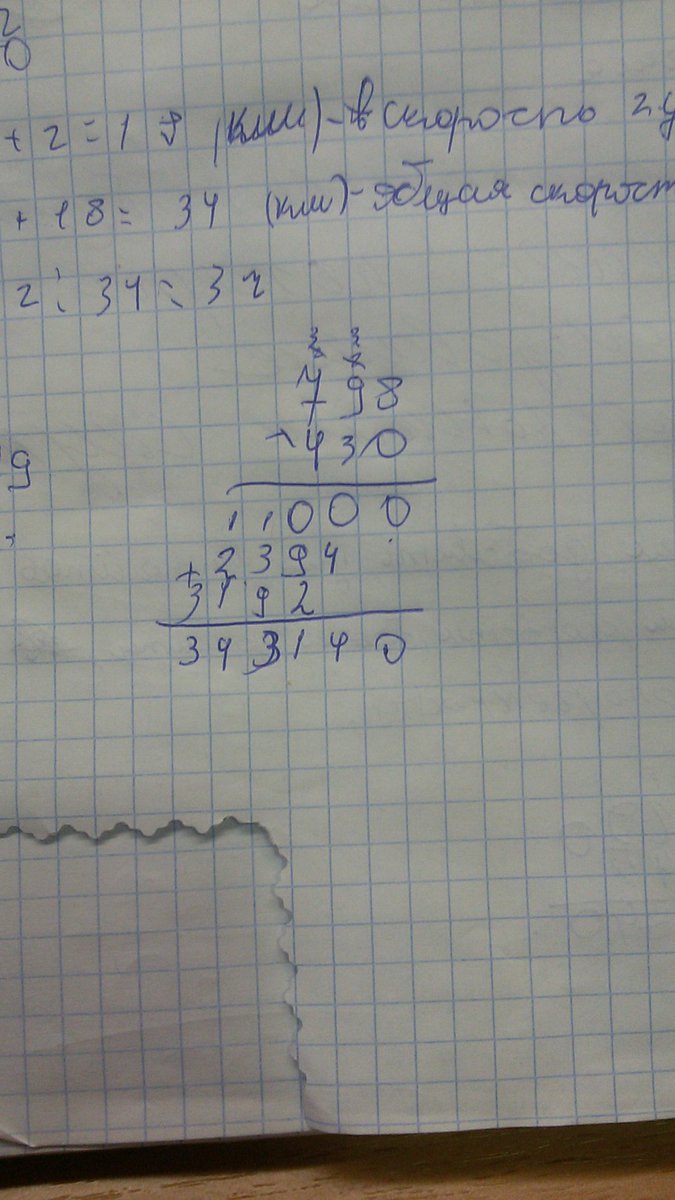 2
0
+ 2 = 18 (км/ч) - скорость 2
+ 18 = 34 (км/ч) - общая скорост
2 : 34 = 3 ч
3 3
2 2
798
430
9
11000
+ 2394
3192
343140